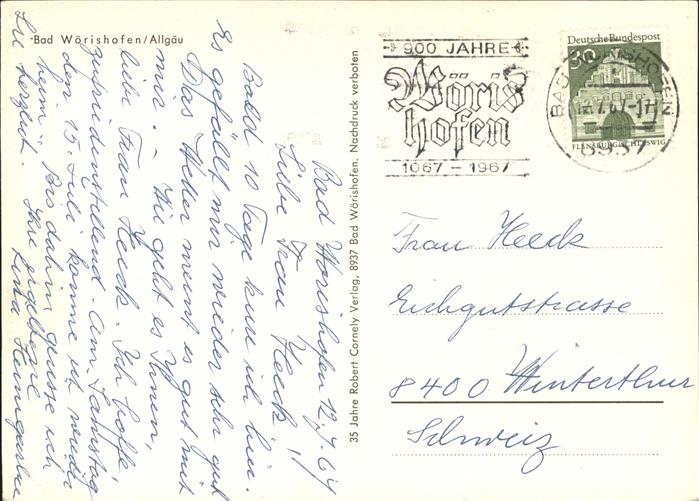 Bad Wörishofen/Allgäu
Bad Wörishofen 12.7.67
Liebe Frau Heeck!
Bald 10 Tage bin ich hier.
Es gefällt mir wieder sehr gut
Das Wetter meint es gut mit
mir. - Wie geht es Ihnen,
liebe Frau Heeck. Ich hoffe,
zufriedenstellend. Am Samstag
den 15. Juli komme ich wieder
heim. Bis dahin grüsse ich
Sie herzlich. Ihre
35 Jahre Robert Cornely Verlag, 8937 Bad Wörishofen. Nachdruck verboten
900 JAHRE
Wöris
hofen
1067 - 1967
Deutsche Bundespost
30
FLENSBURG/SCHLESWIG
BAD WÖRISHOFEN
7.67-17
8937
Frau Heeck
Eichgutstrasse
8400 Winterthur
Schweiz